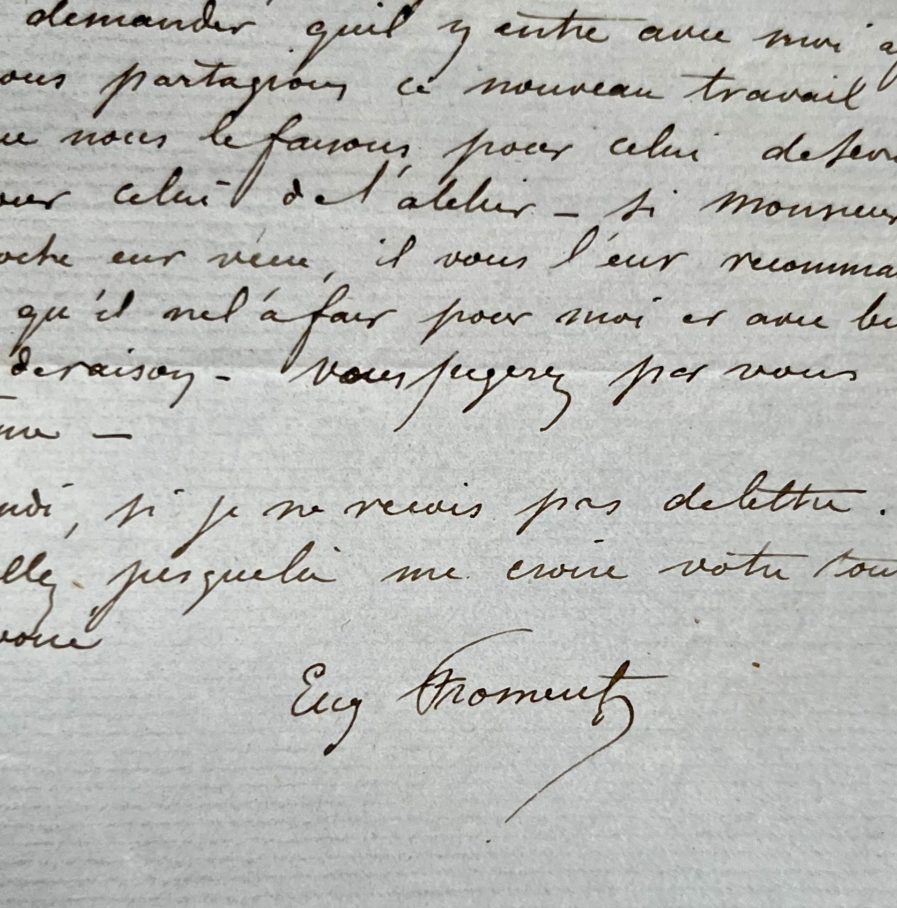 demander quil y entre avec moi a
ous partagions ce nouveau travail
ue nous le faisons pour celui de
our celui de l'atelier - si monsieur
oche eur vécu, il vous l'eur recomma
qu'il nel'a fair pour moi er avec
de raison - vous jugerez par vous
me -
ndi, si je ne recois pas de lettre.
llez jusquelà me croire votre tou
voué
Eug Froment